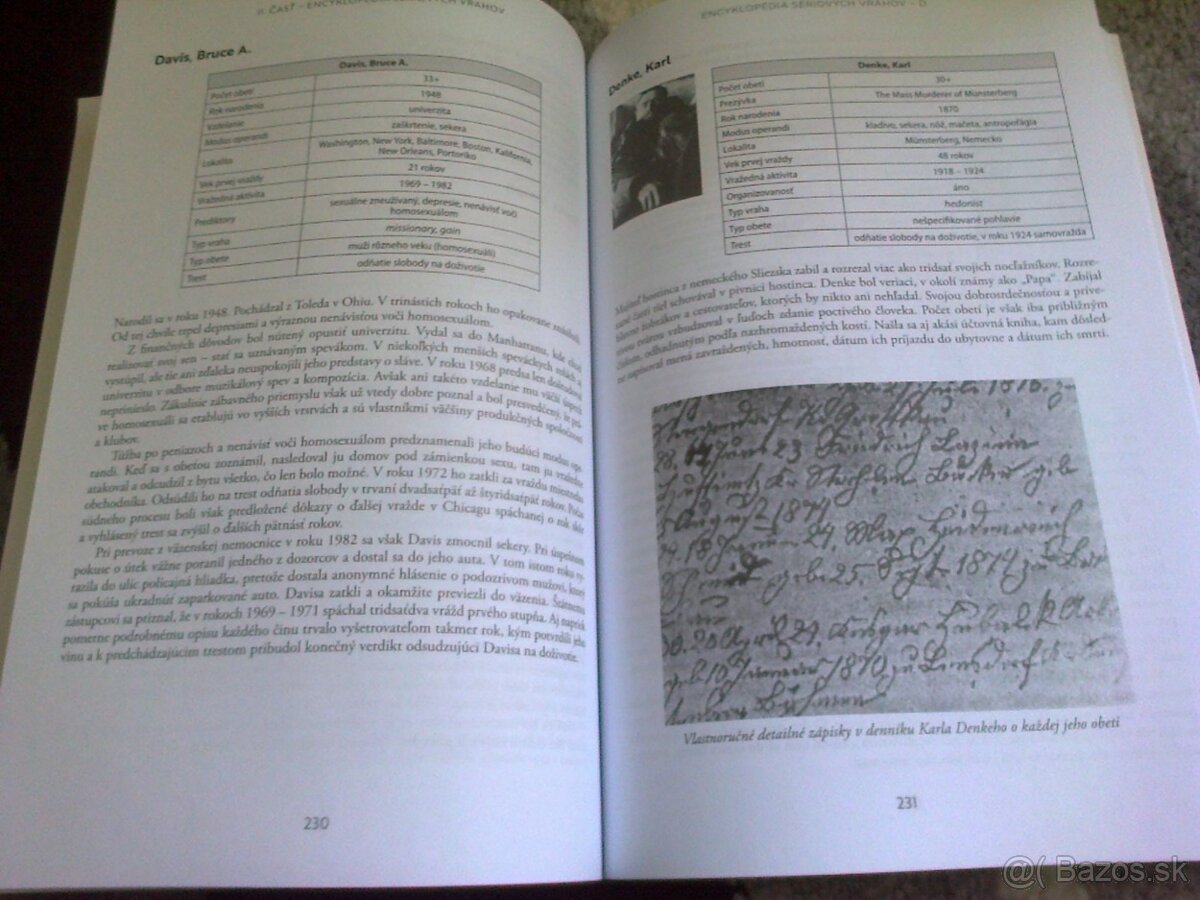 II. ČASŤ – ENCYKLOPÉDIA SÉRIOVÝCH VRAHOV
Davis, Bruce A.
Davis, Bruce A.
Počet obetí 33+
Rok narodenia 1948
Vzdelanie univerzita
Modus operandi zaškrtenie, sekera
Lokalita Washington, New York, Baltimore, Boston, Kalifornia,
New Orleans, Portoriko
Vek prvej vraždy 21 rokov
Vražedná aktivita 1969 – 1982
Prediktory sexuálne zneužívaný, depresie, nenávisť voči
homosexuálom
Typ vraha missionary, gain
Typ obete muži rôzneho veku (homosexuáli)
Trest odňatie slobody na doživotie
Narodil sa v roku 1948. Pochádzal z Toleda v Ohiu. V trinástich rokoch ho opakovane znásilnili.
Od tej chvíle trpel depresiami a výraznou nenávisťou voči homosexuálom.
Z finančných dôvodov bol nútený opustiť univerzitu. Vydal sa do Manhattanu, kde chcel
realizovať svoj sen – stať sa uznávaným spevákom. V niekoľkých menších speváckych rolách
vystúpil, ale tie ani zďaleka neuspokojili jeho predstavy o sláve. V roku 1968 predsa len doštudoval
univerzitu v odbore muzikálový spev a kompozícia. Avšak ani takéto vzdelanie mu väčší úspech
neprinieslo. Zákulisie zábavného priemyslu však už vtedy dobre poznal a bol presvedčený, že
ve homosexuáli sa etablujú vo vyšších vrstvách a sú vlastníkmi väčšiny produkčných spoločností
a klubov.
Túžba po peniazoch a nenávisť voči homosexuálom predznamenali jeho budúci modus ope
randi. Keď sa s obeťou zoznámil, nasledoval ju domov pod zámienkou sexu, tam ju
atakoval a odcudzil z bytu všetko, čo len bolo možné. V roku 1972 ho zatkli za vraždu miestneho
obchodníka. Odsúdili ho na trest odňatia slobody v trvaní dvadsaťpäť až štyridsaťpäť rokov. Počas
súdneho procesu boli však predložené dôkazy o ďalšej vražde v Chicagu spáchanej o rok skôr
a vyhlásený trest sa zvýšil o ďalších pätnásť rokov.
Pri prevoze z väzenskej nemocnice v roku 1982 sa však Davis zmocnil sekery. Pri úspešnom
pokuse o útek vážne poranil jedného z dozorcov a dostal sa do jeho auta. V tom istom roku vy-
razila do ulíc policajná hliadka, pretože dostala anonymné hlásenie o podozrivom mužovi, ktorý
sa pokúša ukradnúť zaparkované auto. Davisa zatkli a okamžite previezli do väzenia. Štátnemu
zástupcovi sa priznal, že v rokoch 1969 – 1971 spáchal tridsaťdva vrážd prvého stupňa. Aj napriek
pomerne podrobnému opisu každého činu trvalo vyšetrovateľom takmer rok, kým potvrdili jeho
vinu a k predchádzajúcim trestom pribudol konečný verdikt odsudzujúci Davisa na doživotie.
230
ENCYKLOPÉDIA SÉRIOVÝCH VRAHOV – D
Denke, Karl
Denke, Karl
Počet obetí 30+
Prezývka The Mass Murderer of Münsterberg
Rok narodenia 1870
Modus operandi kladivo, sekera, nôž, mačeta, antropofágia
Lokalita Münsterberg, Nemecko
Vek prvej vraždy 48 rokov
Vražedná aktivita 1918 – 1924
Organizovanosť áno
Typ vraha hedonist
Typ obete nešpecifikované pohlavie
Trest odňatie slobody na doživotie, v roku 1924 samovražda
Majiteľ hostinca z nemeckého Sliezska zabil a rozrezal viac ako tridsať svojich nocľažníkov. Rozre-
zané časti tiel schovával v pivnici hostinca. Denke bol veriaci, v okolí známy ako „Papa“. Zabíjal
hlavne tulákov a cestovateľov, ktorých by nikto ani nehľadal. Svojou dobrosrdečnosťou a príve-
tivou tvárou vzbudzoval v ľuďoch zdanie poctivého človeka. Počet obetí je však iba približným
číslom, odhadnutým podľa nazhromaždených kostí. Našla sa aj akási účtovná kniha, kam dôsled-
ne zapisoval mená zavraždených, hmotnosť, dátum ich príjazdu do ubytovne a dátum ich smrti.
Vlastnoručné detailné zápisky v denníku Karla Denkeho o každej jeho obeti
231
@( Bazos.sk